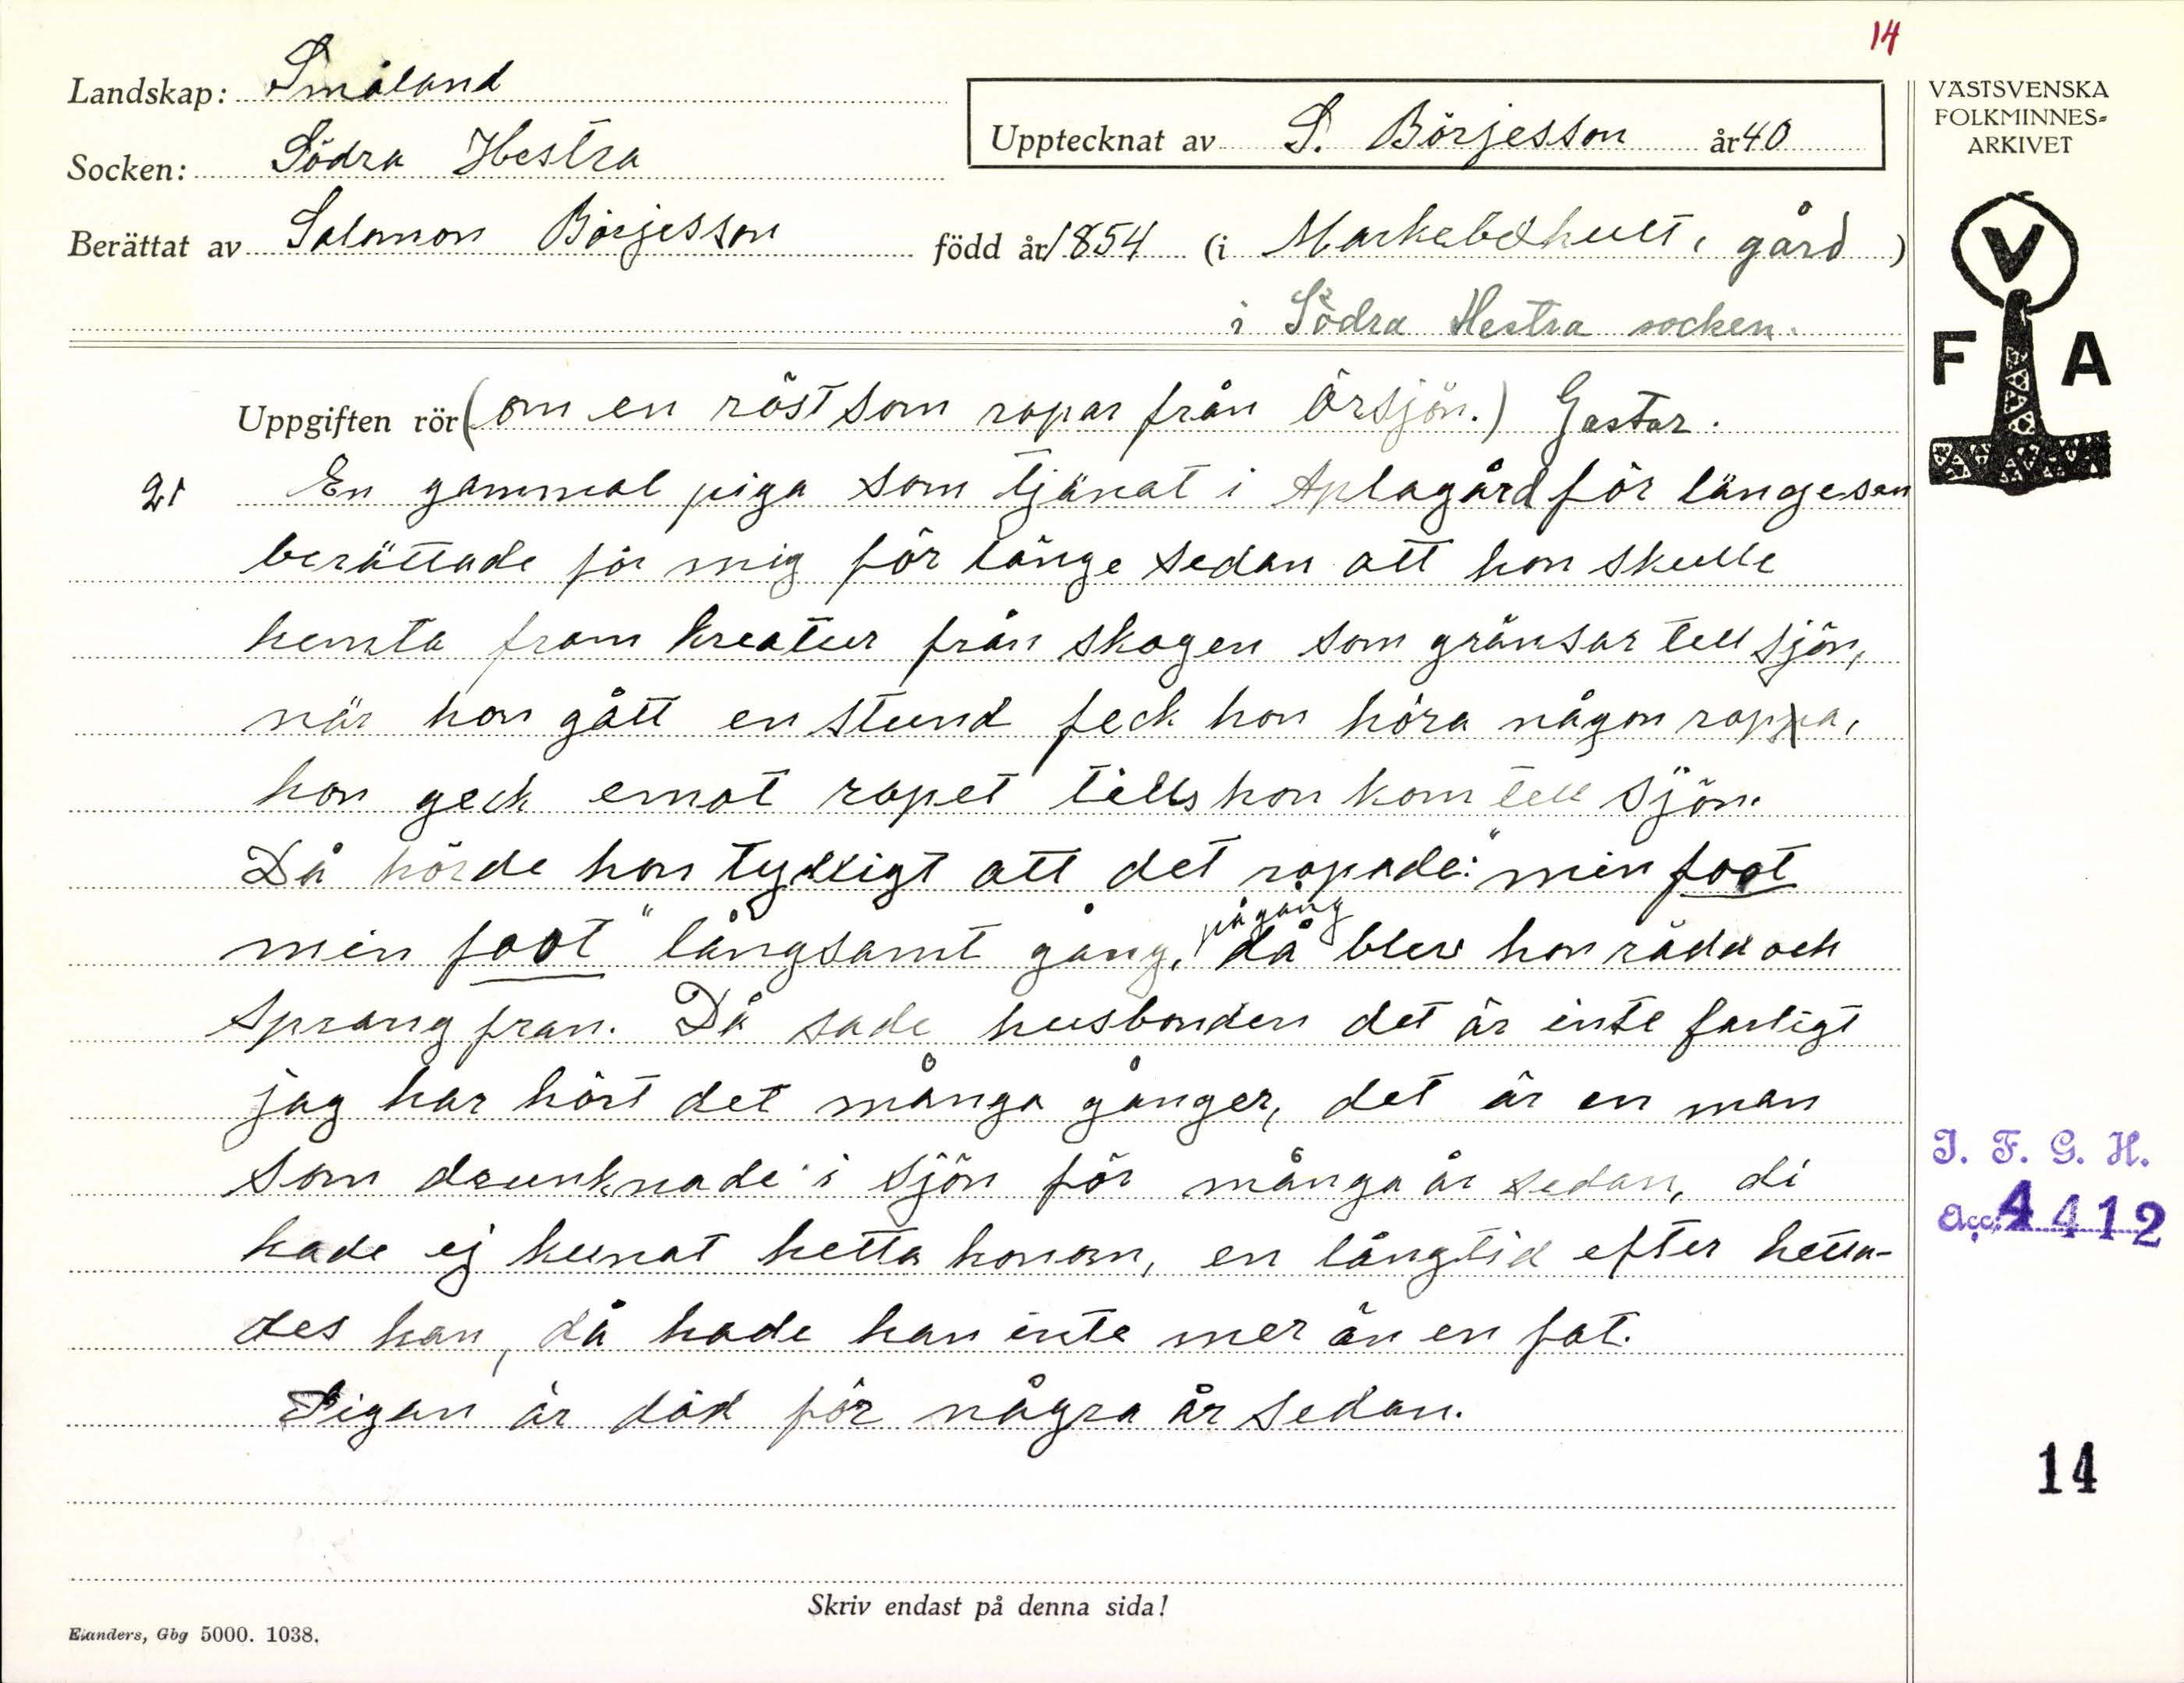 14
Landskap: Småland
Socken: Södra Hestra
Upptecknat av S. Börjesson år 40
Berättat av Salomon Börjesson född år 1854 (i Markebohult, gård)
i Södra Hestra socken.
VÄSTSVENSKA
FOLKMINNES-
ARKIVET
V
F A
Uppgiften rör (om en röst som ropar från Örsjön.) Gastar.
21 En gammal piga som tjänat i Aplagård för längesen
berättade för mig för länge sedan att hon skulle
hemta fram kreatur från skogen som gränsar tell sjön,
när hon gått en stund feck hon höra någon roppa,
hon geck emot ropet tills hon kom tell sjön.
Då hörde hon tydligt att det ropade: "min foot
min foot" långsamt gång, på gång då blev hon rädd och
sprang fran. Då sade husbonden det är inte farligt
jag har hört det många gånger, det är en man
som drunknade i sjön för många år sedan, di
hade ej kunat hetta honom, en långtid efter hetta-
des han, då hade han inte mer än en fot.
Pigan är död för några år sedan.
I. F. G. H.
Acc. 4412
14
Skriv endast på denna sida!
Elanders, Gbg 5000. 1038.